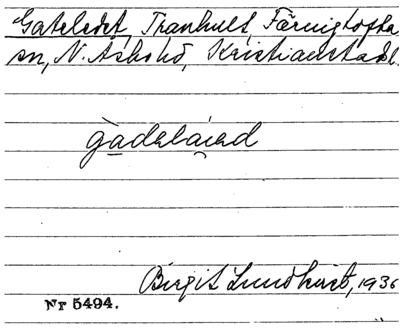 Gateledet, Tranhult, Färingtofta
sn, N. Åsbo hd, Kristianstads l.
gàdəláiəd
Birgit Lundkvist, 1936
Nr 5494.